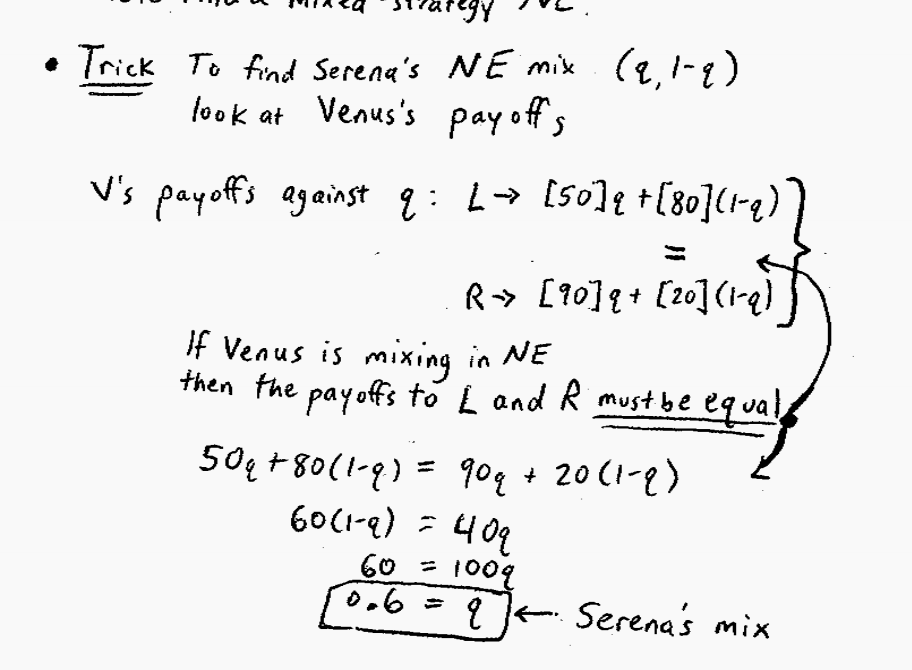 mixed strategy NE.
• Trick To find Serena's NE mix (q, 1-q)
look at Venus's payoffs
V's payoffs against q: L → [50]q + [80](1-q)
=
R → [90]q + [20](1-q)
If Venus is mixing in NE
then the payoffs to L and R must be equal
50q + 80(1-q) = 90q + 20(1-q)
60(1-q) = 40q
60 = 100q
0.6 = q ← Serena's mix